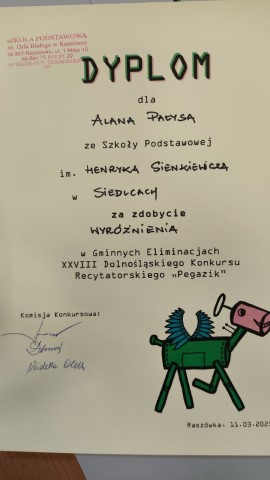 SZKOŁA PODSTAWOWA
im. Orła Białego w Raszówce
DYPLOM
dla
ALANA PAŁYSA
ze Szkoły Podstawowej
im. HENRYKA SIENKIEWICZA
w SIEDLCACH
za zdobycie
WYRÓŻNIENIA
w Gminnych Eliminacjach
XXVIII Dolnośląskiego Konkursu
Recytatorskiego „Pegazik"
Komisja Konkursowa:
Raszówka, 11.03.202